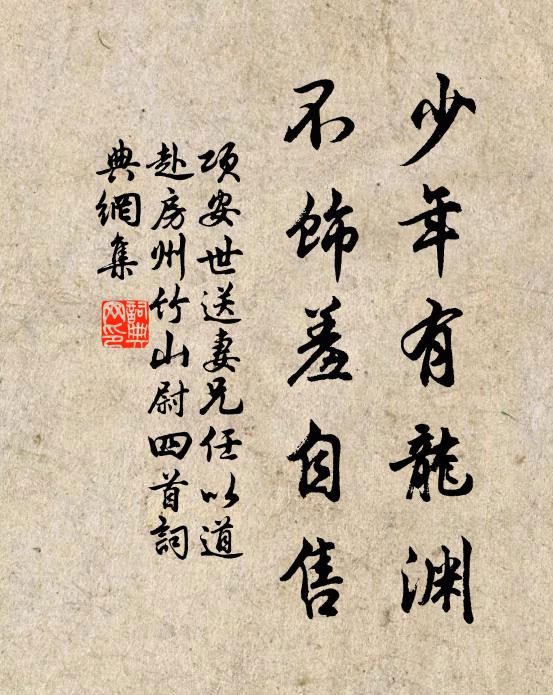 少年有龍渊
不飾羞自售
項安世送妻兄任以道
赴房州竹山尉四首詞
典網集
詞典
网印